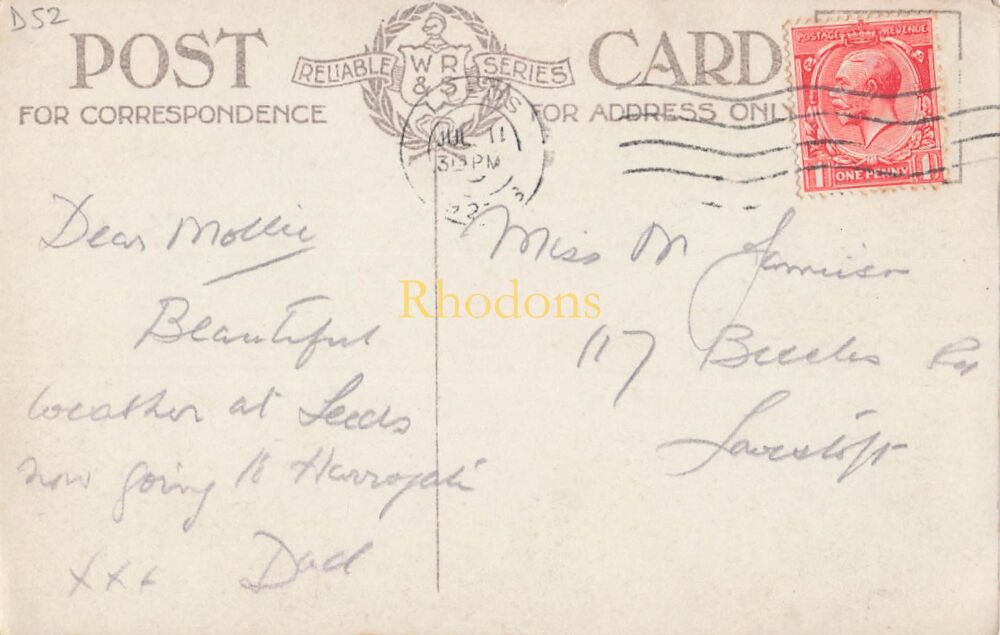 D52
POST CARD
RELIABLE WR & S SERIES
FOR CORRESPONDENCE
FOR ADDRESS ONLY
POSTAGE REVENUE
ONE PENNY
1 1
JUL 11
PM
Dear Mollie
Beautiful
weather at Leeds
now going to Harrogate
xxx Dad
Miss M
117 Beccles Rd
Lowestoft
Rhodons